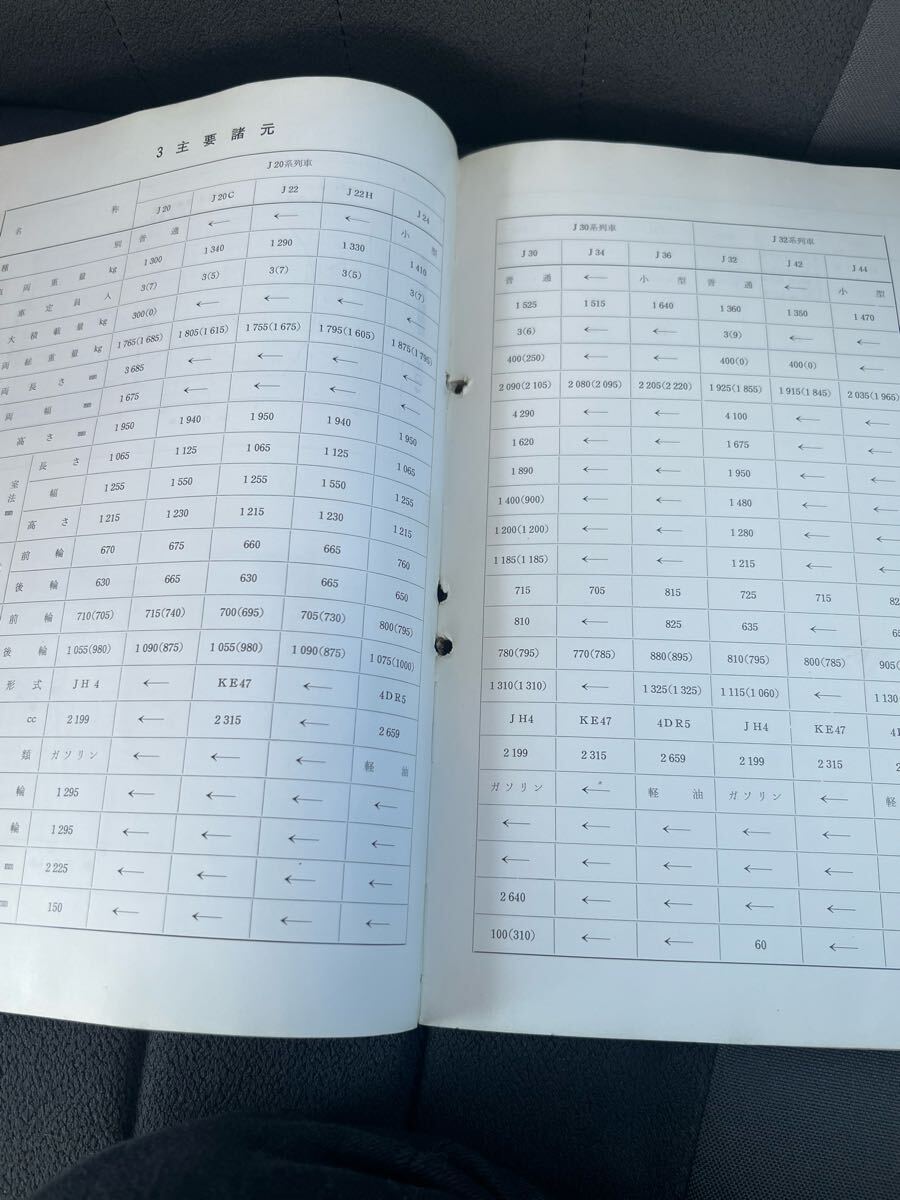 3 主要諸元
J20系列車
名 称 J20 J20C J22 J22H J24
種 別 普通 ← ← ← 小型
両重量 kg 1300 1340 1290 1330 1410
車定員 人 3(7) 3(5) 3(7) 3(5) 3(7)
大積載量 kg 300(0) ← ← ← ←
両総重量 kg 1765(1685) 1805(1615) 1755(1675) 1795(1605) 1875(1795)
両長さ mm 3685 ← ← ← ←
両幅 mm 1675 ← ← ← ←
高さ mm 1950 1940 1950 1940 1950
室 法 mm
長さ 1065 1125 1065 1125 1065
幅 1255 1550 1255 1550 1255
高さ 1215 1230 1215 1230 1215
前輪 670 675 660 665 760
後輪 630 665 630 665 650
前輪 710(705) 715(740) 700(695) 705(730) 800(795)
後輪 1055(980) 1090(875) 1055(980) 1090(875) 1075(1000)
形式 JH4 ← KE47 ← 4DR5
cc 2199 ← 2315 ← 2659
類 ガソリン ← ← ← 軽油
輪 1295 ← ← ← ←
輪 1295 ← ← ← ←
mm 2225 ← ← ← ←
mm 150 ← ← ← ←
J30系列車 J32系列車
J30 J34 J36 J32 J42 J44
普通 ← 小型 普通 ← 小型
1525 1515 1640 1360 1350 1470
3(6) ← ← 3(9) ← ←
400(250) ← ← 400(0) 400(0) ←
2090(2105) 2080(2095) 2205(2220) 1925(1855) 1915(1845) 2035(1965)
4290 ← ← 4100 ← ←
1620 ← ← 1675 ← ←
1890 ← ← 1950 ← ←
1400(900) ← ← 1480 ← ←
1200(1200) ← ← 1280 ← ←
1185(1185) ← ← 1215 ← ←
715 705 815 725 715 82
810 ← 825 635 ← 65
780(795) 770(785) 880(895) 810(795) 800(785) 905(
1310(1310) ← 1325(1325) 1115(1060) ← 1130(
JH4 KE47 4DR5 JH4 KE47
2199 2315 2659 2199 2315 2
ガソリン ← 軽油 ガソリン ← 軽
← ← ← ← ←
← ← ← ← ←
2640 ← ← ← ←
100(310) ← ← 60 ←